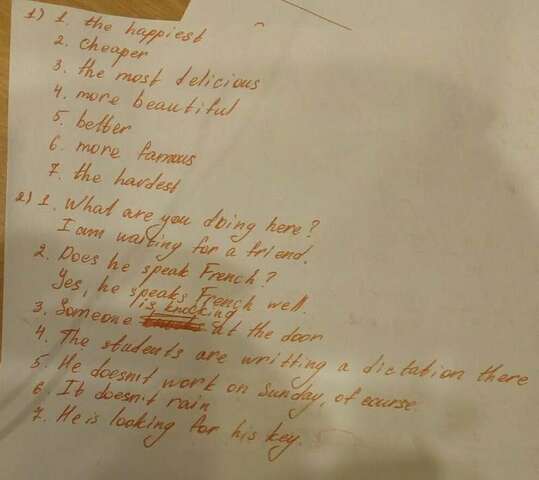 1) 1. the happiest
2. cheaper
3. the most delicious
4. more beautiful
5. better
6. more famous
7. the hardest
2) 1. What are you doing here?
I am waiting for a friend.
2. Does he speak French?
Yes, he speaks French well.
is knocking
3. Someone knocks at the door
4. The students are writting a dictation there
5. He doesn't work on Sunday, of course
6. It doesn't rain
7. He is looking for his key.